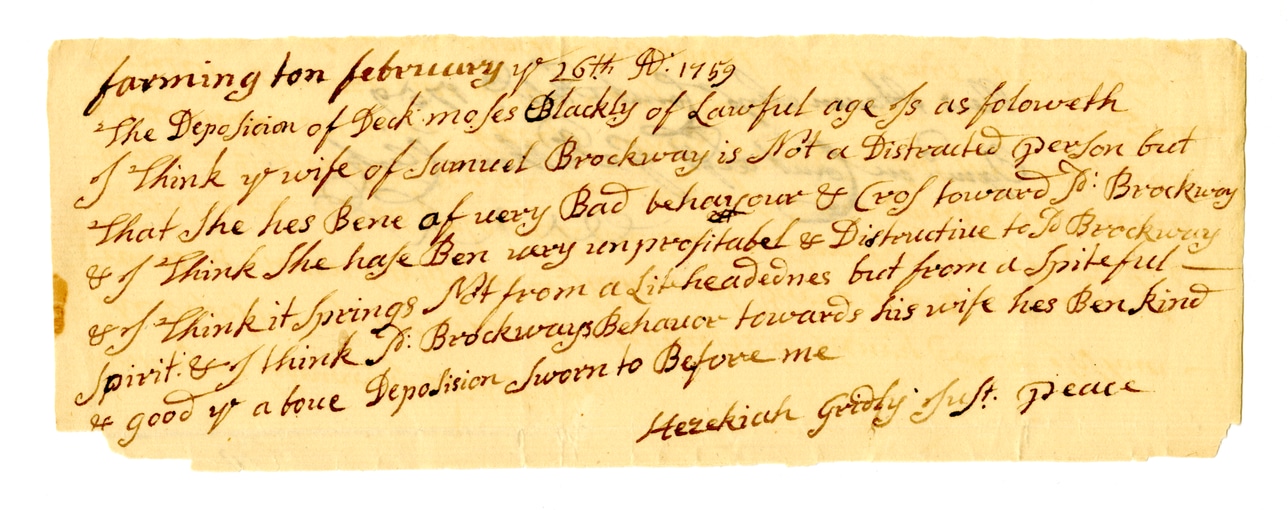 farmington february ye 26th AD: 1759
The Deposicion of Deck moses Blackly of Lawful age Is as foloweth
I Think ye wife of Samuel Brockway is Not a Distracted person but
That She hes Bene of very Bad behavour & Cros toward Sd: Brockway
& I Think She hase Ben very unprofitabel & Distructive to Sd Brockway
& I Think it Springs Not from a Liteheadednes but from a Spiteful
Spirit: & I think Sd: Brockways Behavor towards his wife hes Ben kind
& good ye above Deposision Sworn to Before me
Hezekiah Gridly Just. peace